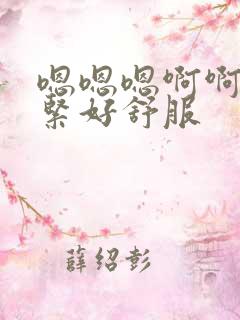 嗯嗯嗯啊啊
緊好舒服
薛绍彭